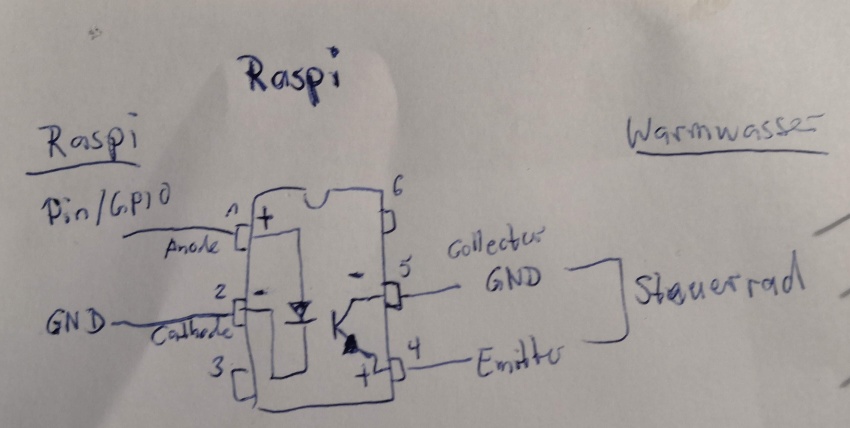 Raspi
Raspi
Warmwasser
Pin/GPIO
1
+
Anode
6
Collector
5
-
GND
Steuerrad
2
-
GND
Cathode
3
4
+
Emitter